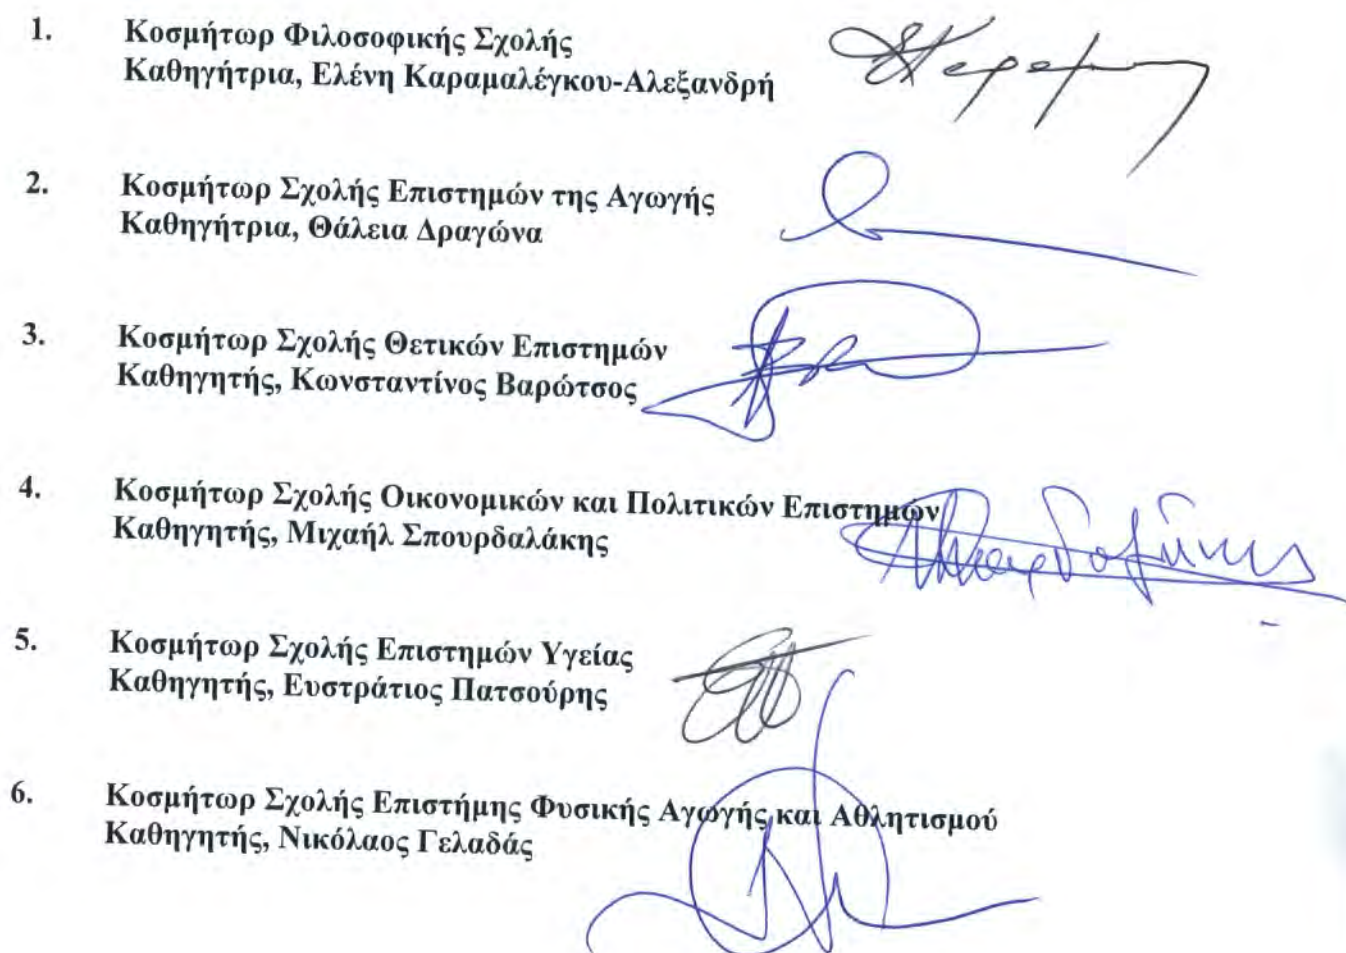 1. Κοσμήτωρ Φιλοσοφικής Σχολής
Καθηγήτρια, Ελένη Καραμαλέγκου-Αλεξανδρή
2. Κοσμήτωρ Σχολής Επιστημών της Αγωγής
Καθηγήτρια, Θάλεια Δραγώνα
3. Κοσμήτωρ Σχολής Θετικών Επιστημών
Καθηγητής, Κωνσταντίνος Βαρώτσος
4. Κοσμήτωρ Σχολής Οικονομικών και Πολιτικών Επιστημών
Καθηγητής, Μιχαήλ Σπουρδαλάκης
5. Κοσμήτωρ Σχολής Επιστημών Υγείας
Καθηγητής, Ευστράτιος Πατσούρης
6. Κοσμήτωρ Σχολής Επιστήμης Φυσικής Αγωγής και Αθλητισμού
Καθηγητής, Νικόλαος Γελαδάς